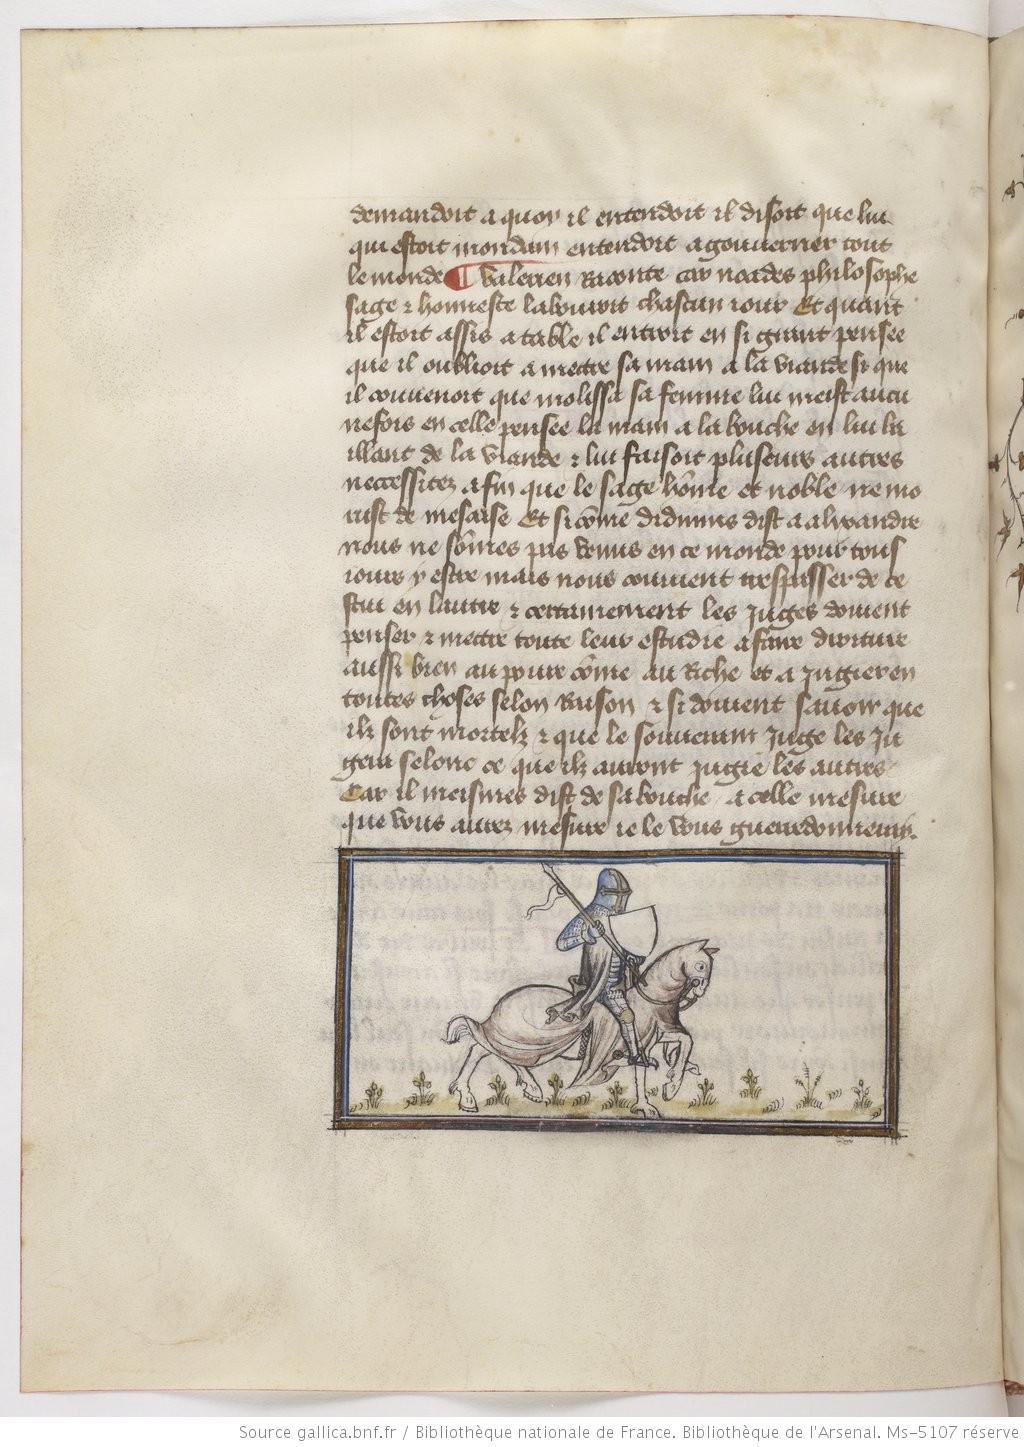 demandoit a quoy il entendoit il disoit que lui
qui estoit mondain entendoit a gouverner tout
le monde ¶ Valerien Raconte car neades philosophe
sage ⁊ honneste labouroit chascun iour Et quant
il estoit assis a table il entroit en si grant pensee
que il oublioit a mettre sa main a la viande si que
il convenoit que molissa sa femme lui meist aucu
nefois en celle pensee la main a la bouche en lui ba
illant de la viande ⁊ lui faisoit pluseurs autres
neccessitez afin que le sage hōme et noble ne mo
rust de mesaise Et si cōme didimus dist a alixandre
nous ne sōmes pas venus en ce monde pour tous
iours y estre mais nous convient trespasser de ce
stui en lautre ⁊ certainement les Juges doivent
penser ⁊ mettre toute leur estudie a faire droiture
aussi bien au povre cōme au Riche et a Jugier en
toutes choses selon Raison ⁊ si doivent savoir que
ilz sont mortelz ⁊ que le souverain Juge les Ju
gera selonc ce que ilz auront Jugie les autres
Car il meismes dist de sa bouche / a celle mesure
que vous aurez mesure ie le vous guerredonneray.
Source gallica.bnf.fr / Bibliothèque nationale de France. Bibliothèque de l'Arsenal. Ms-5107 réserve